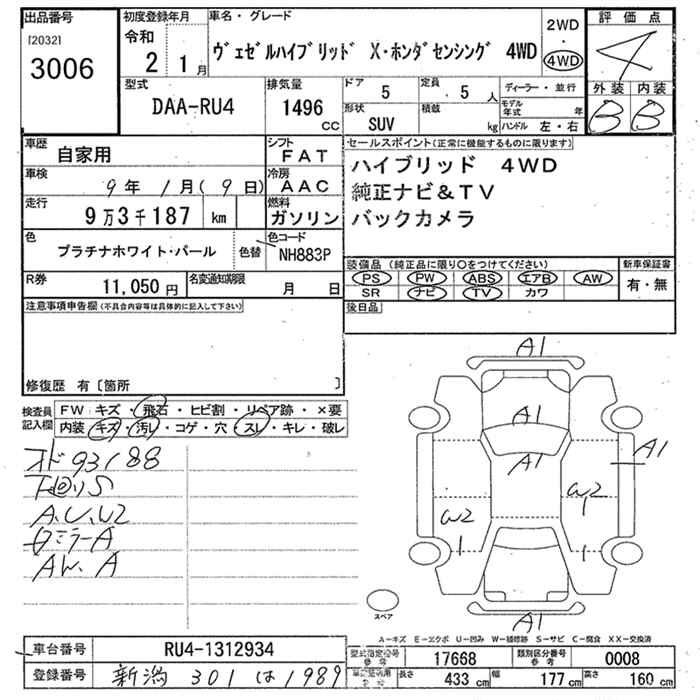 出品番号
[2032]
3006
初度登録年月
令和
2 1月
車名・グレード
ヴェゼルハイブリッド X・ホンダセンシング 4WD
2WD
・
4WD
評価点
4
外装 内装
B B
型式
DAA-RU4
排気量
1496
cc
ドア
5
定員
5人
形状
SUV
積載
kg
ディーラー・並行
モデル年式 年
ハンドル 左・右
車歴
自家用
シフト
FAT
車検
9年 1月(9日)
冷房
AAC
走行
9万3千187 km
燃料
ガソリン
色
プラチナホワイト・パール
色替
色コード
NH883P
R券
11,050円
名変通知期限
月 日
セールスポイント(正常に機能するものに限ります)
ハイブリッド 4WD
純正ナビ&TV
バックカメラ
装備品(純正品に限り○をつけてください)
PS PW ABS エアB AW
SR ナビ TV カワ
新車保証書
有・無
後日品
注意事項申告欄(不具合内容等は具体的に記入して下さい)
修復歴 有〔箇所 〕
検査員記入欄
FW キズ・飛石・ヒビ割・リペア跡・×要
内装 キズ・汚レ・コゲ・穴・スレ・キレ・破レ
オド93188
下回りS
A.U.U2
ロミラーA
AW.A
A1
A1
A1
A1
W2
W2
A1
スペア
A−キズ E−エクボ U−凹み W−補修跡 S−サビ C−腐食 XX−交換済
車台番号
RU4-1312934
登録番号
新潟 301 は 1989
型式指定番号
参考
17668
類別区分番号
参考
0008
長さ
433 cm
幅
177 cm
高さ
160 cm